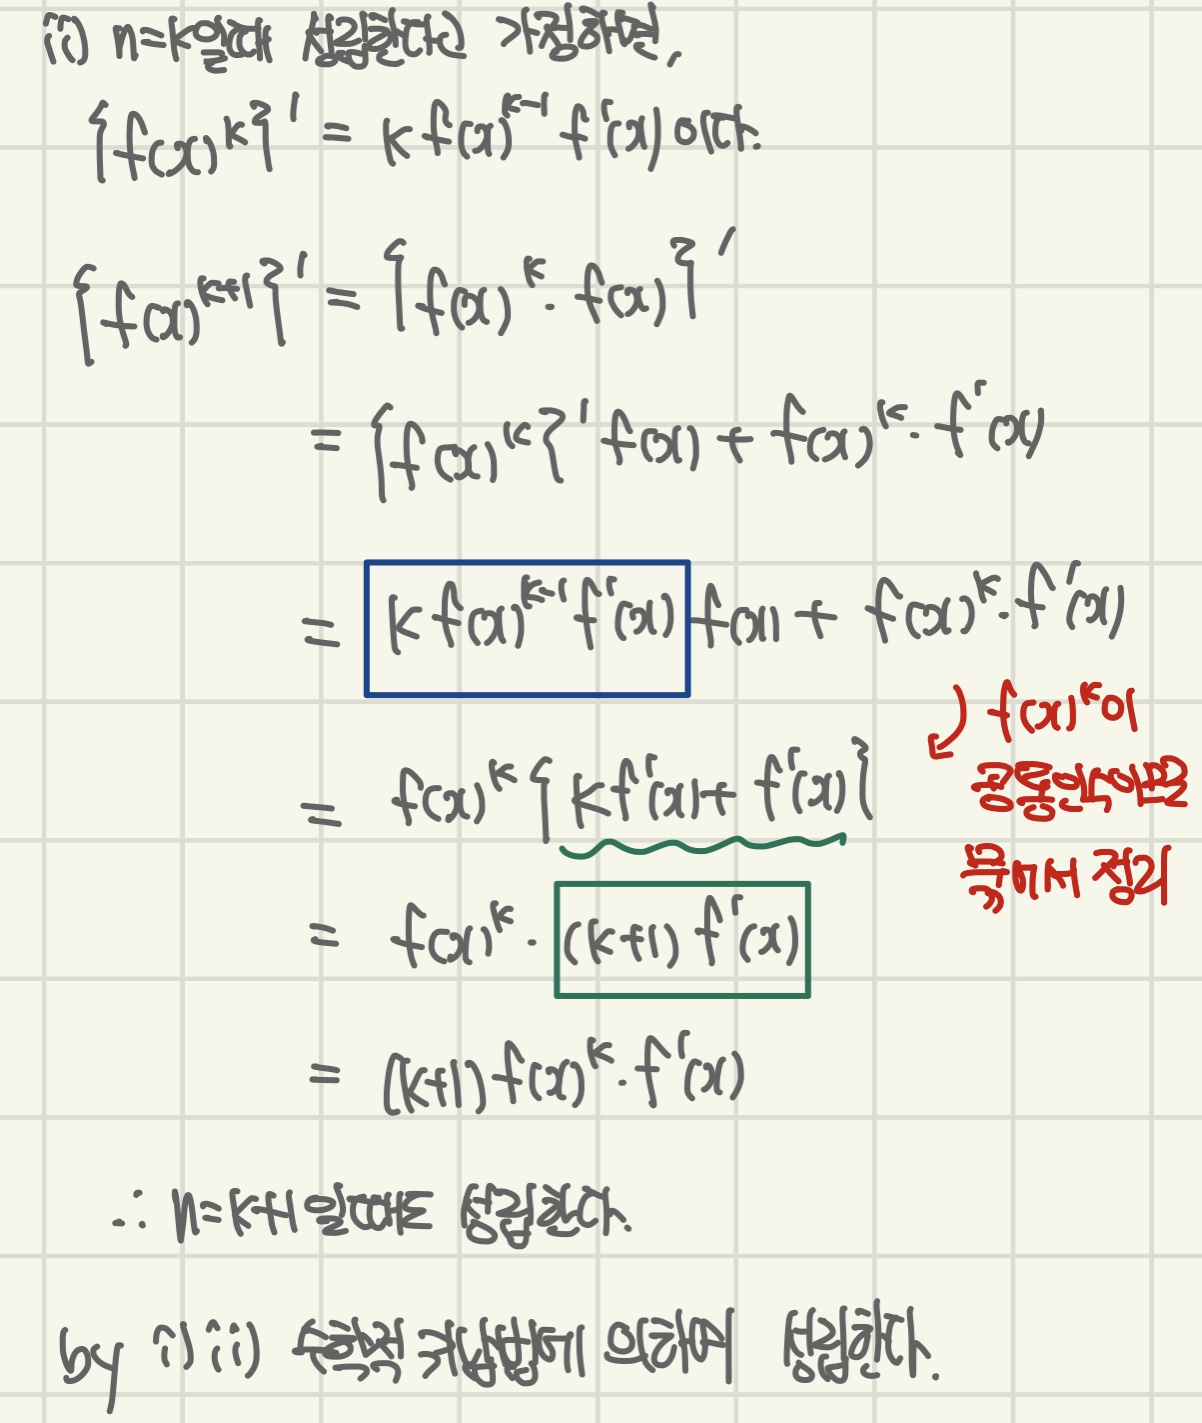 ii) n=k일 때 성립한다고 가정하면,
{f(x)^k}' = k f(x)^{k-1} f'(x) 이다.
{f(x)^{k+1}}' = {f(x)^k · f(x)}'
= {f(x)^k}' f(x) + f(x)^k · f'(x)
= k f(x)^{k-1} f'(x) f(x) + f(x)^k · f'(x)
f(x)^k이
공통인수이므로
묶어서 정리
= f(x)^k {k f'(x) + f'(x)}
= f(x)^k · (k+1) f'(x)
= (k+1) f(x)^k · f'(x)
∴ n=k+1일 때도 성립한다.
by i) ii) 수학적 귀납법에 의하여 성립한다.